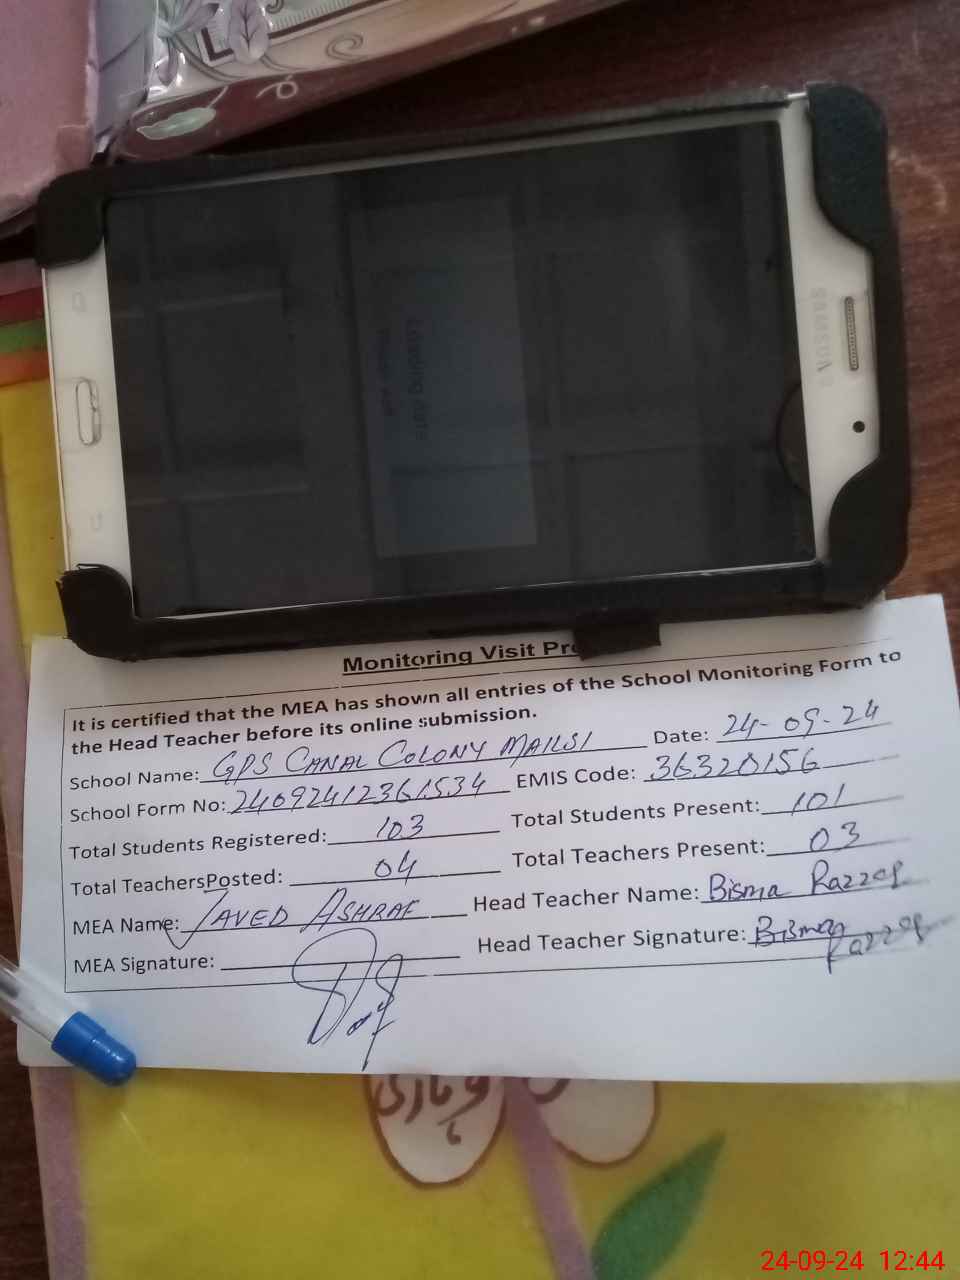 SAMSUNG
Monitoring Visit Pr
It is certified that the MEA has shown all entries of the School Monitoring Form to
the Head Teacher before its online submission.
School Name: GPS CANAL COLONY MAILSI Date: 24-09-24
School Form No: 24092412361534 EMIS Code: 36320156
Total Students Registered: 103 Total Students Present: 101
Total TeachersPosted: 04 Total Teachers Present: 03
MEA Name: JAVED ASHRAF Head Teacher Name: Bisma Razzaq
MEA Signature: Head Teacher Signature: Bisma
Razzaq
وہاڑی
24-09-24 12:44